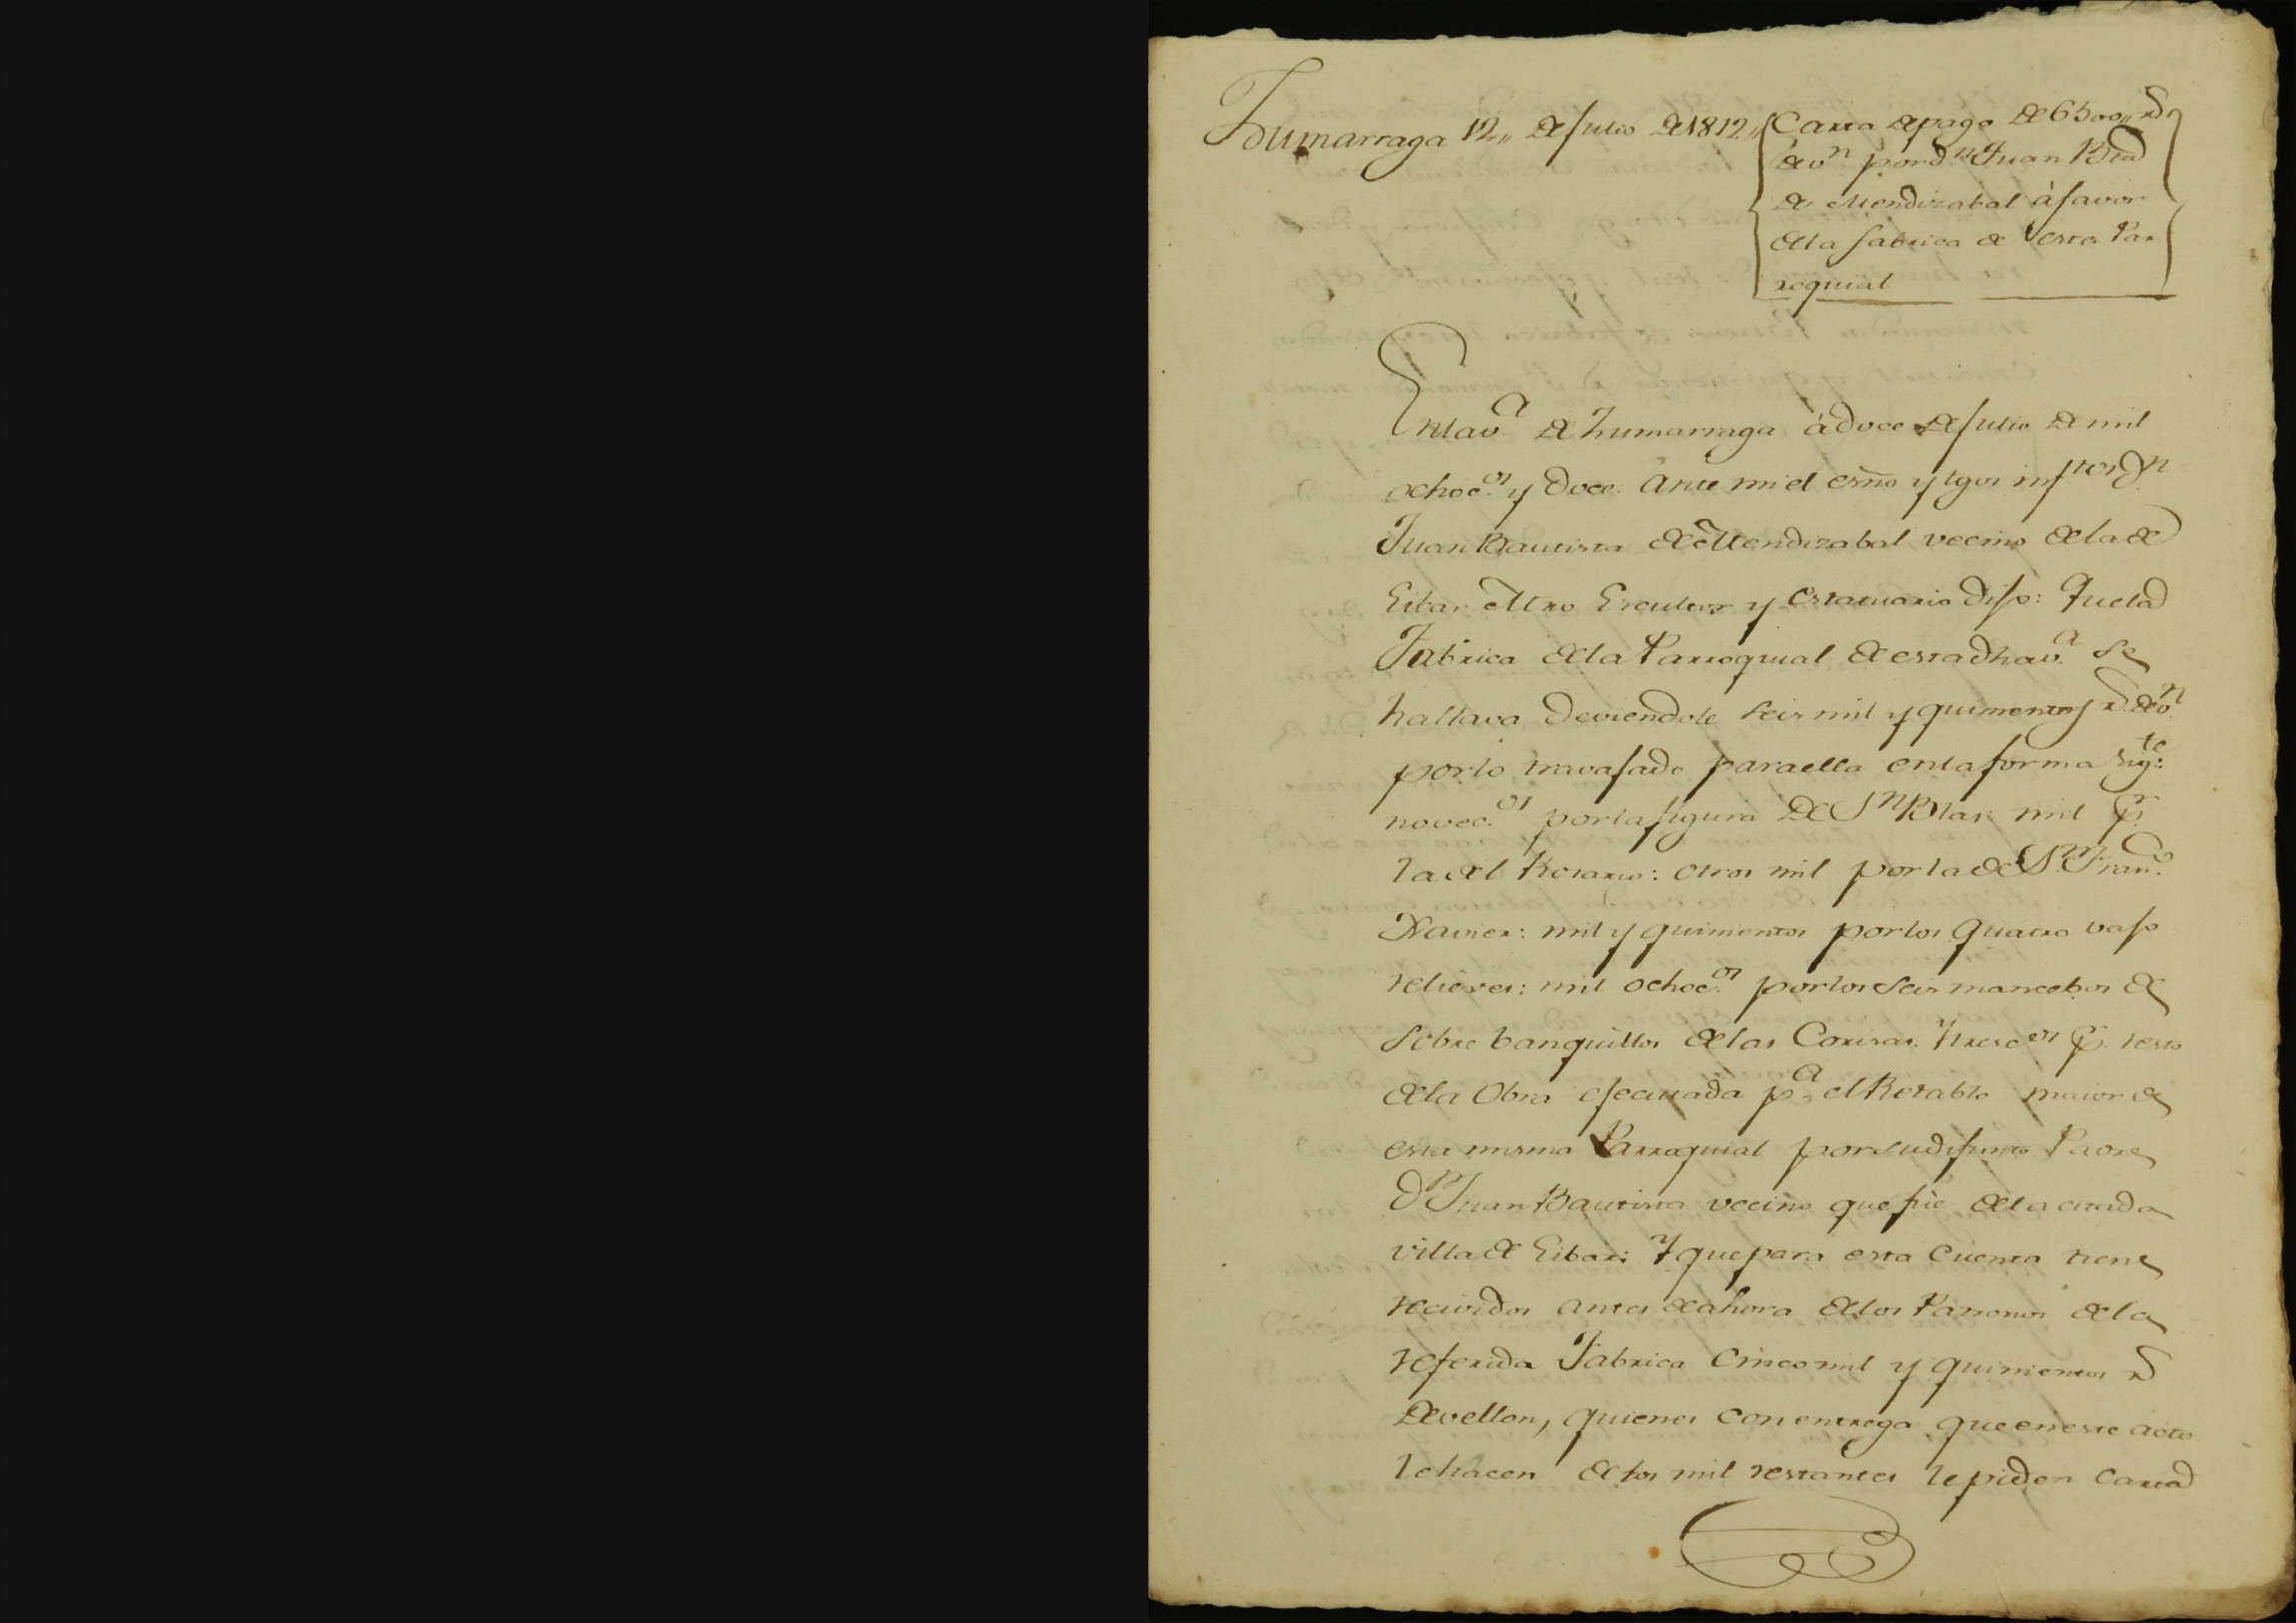 Zumarraga 12,, de Julio de 1812,,
Carta de pago de 6500,, rs
de vn por dn Juan Bta
de Mendizabal à favor
de la fabrica de esta Par
roquial
En la va de Zumarraga à doce de Julio de mil
ochocos y doce. Ante mi el esno y tgos infros Dn
Juan Bautista de Mendizabal vecino de la de
Eibar Mro Escultor y estatuario dijo: Que la
Fabrica de la Parroquial de esta dha va se
hallava deviendole seis mil y quinientos rs de vn
por lo travajado para ella en la forma sigte:
novecos por la figura de Sn Blas: mil pr
la del Rosario: otros mil por la de Sn Franco
Xavier: mil y quinientos por los quatro vajo
relieves: mil ochocos por los seis mancebos de
sobre banquillos de las Cornisas. Y trescos pr resto
de la Obra ejecutada pa el Retablo maior de
esta misma Parroquial por su difunto Padre
Dn Juan Bautista vecino que fùe de la citada
villa de Eibar: Y que para esta cuenta tiene
recividos antes de ahora de los Patronos de la
referida Fabrica cinco mil y quinientos rs
de vellon, quienes con entrega que en este acto
le hacen de los mil restantes le piden carta